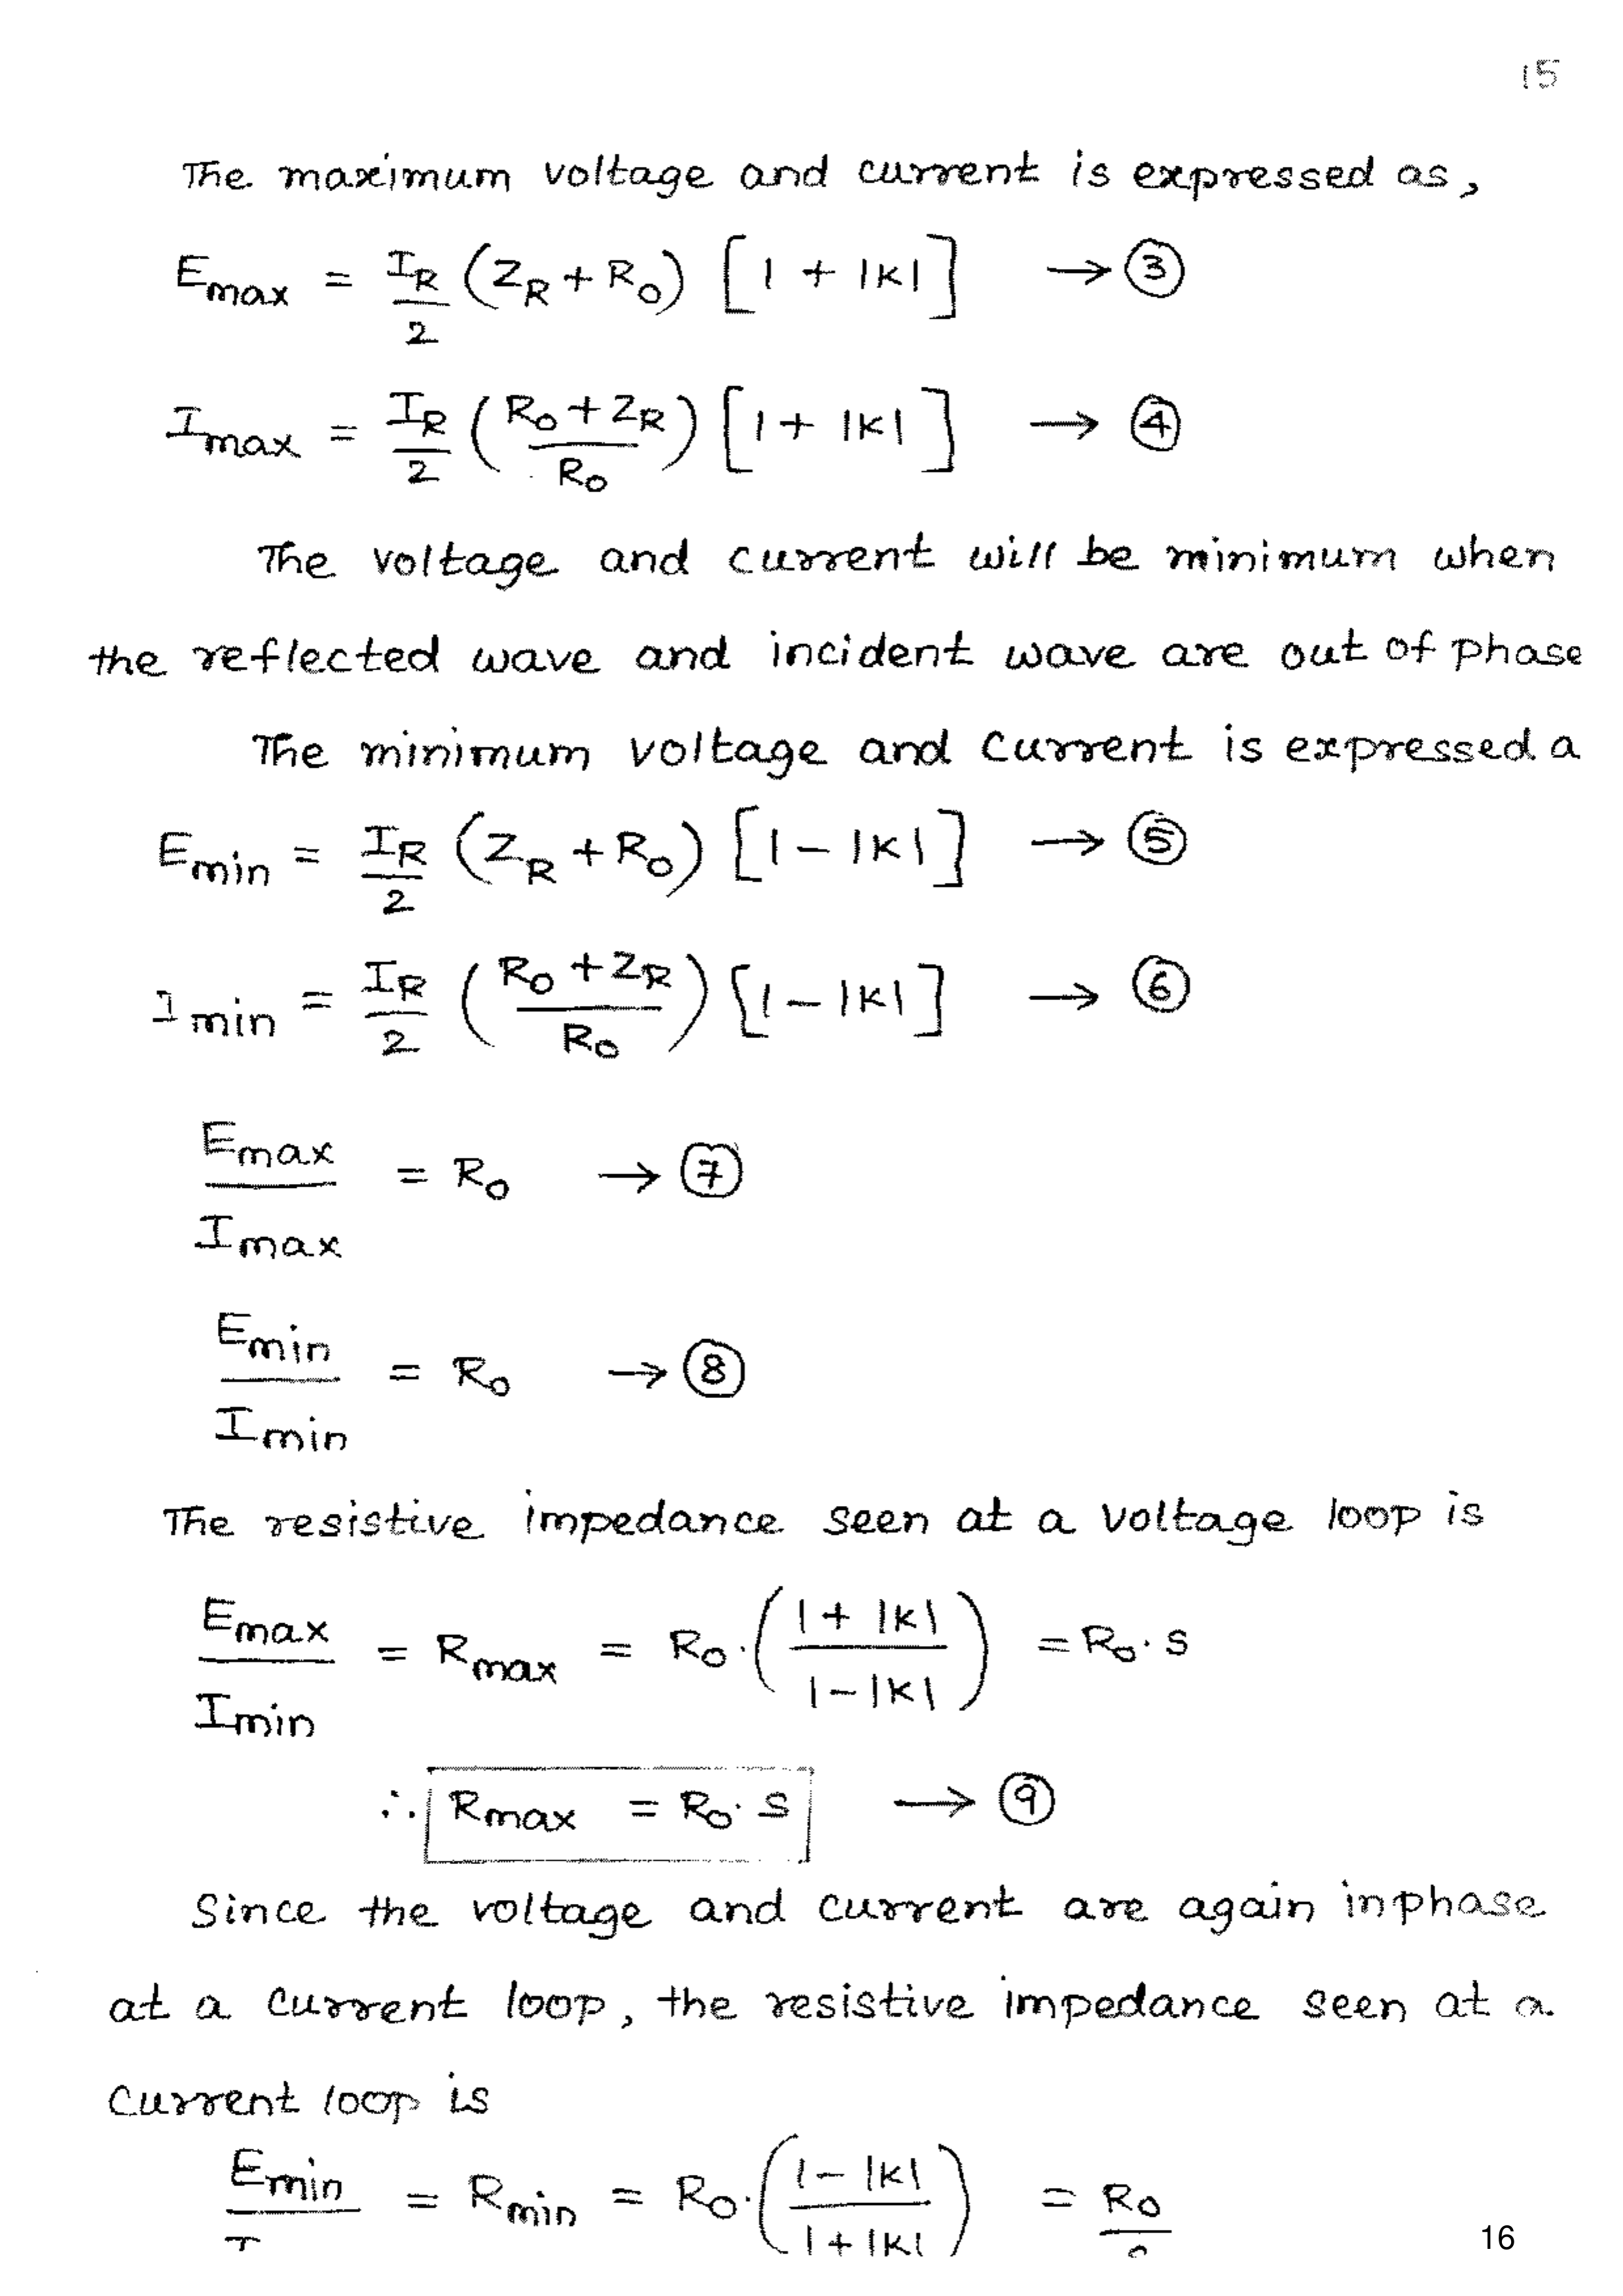 15
The maximum voltage and current is expressed as,
Emax = IR/2 (ZR + R0) [1 + |K|] → ③
Imax = IR/2 ((R0 + ZR)/R0) [1 + |K|] → ④
The voltage and current will be minimum when
the reflected wave and incident wave are out of phase
The minimum voltage and current is expressed a
Emin = IR/2 (ZR + R0) [1 - |K|] → ⑤
Imin = IR/2 ((R0 + ZR)/R0) [1 - |K|] → ⑥
Emax/Imax = R0 → ⑦
Emin/Imin = R0 → ⑧
The resistive impedance seen at a voltage loop is
Emax/Imin = Rmax = R0 · ((1 + |K|)/(1 - |K|)) = R0 · s
∴ Rmax = R0 · s → ⑨
Since the voltage and current are again inphase
at a current loop, the resistive impedance seen at a
current loop is
Emin/I = Rmin = R0 · ((1 - |K|)/(1 + |K|)) = R0/
16